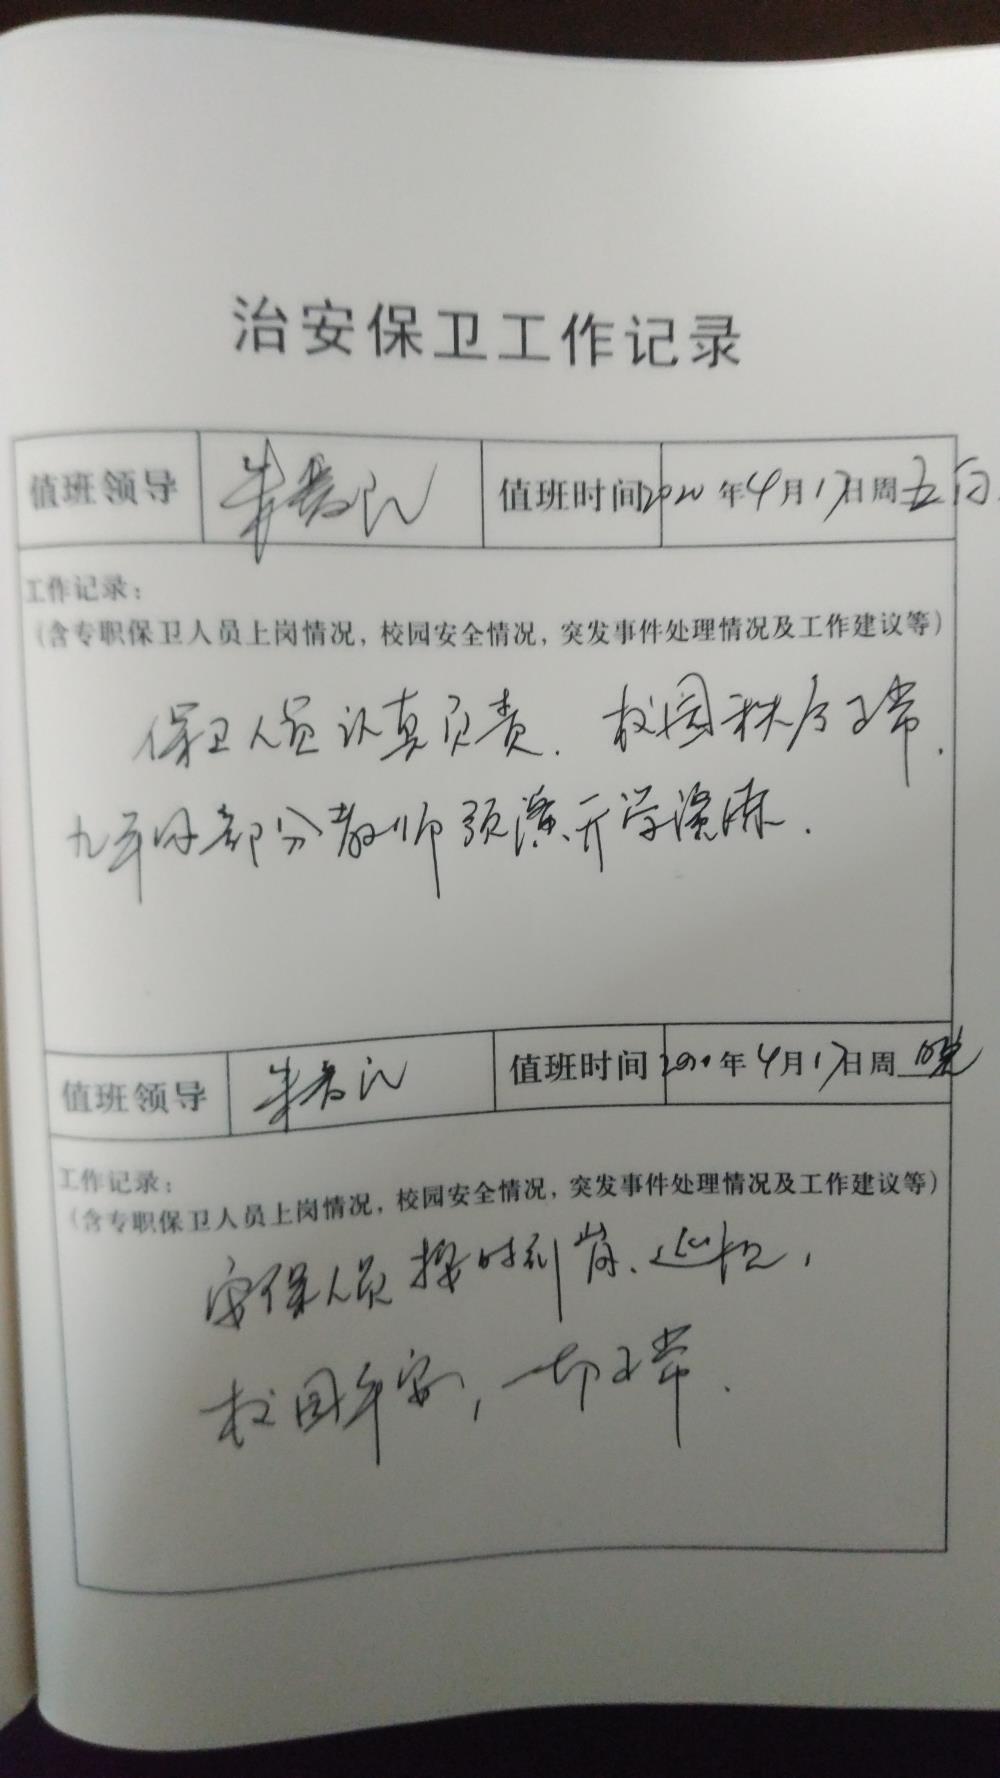 治安保卫工作记录
值班领导 朱 值班时间 2020年4月17日周五
工作记录：
（含专职保卫人员上岗情况，校园安全情况，突发事件处理情况及工作建议等）
保卫人员认真负责．校园秩序正常．
九年级部分教师预演开学演练．
值班领导 朱 值班时间 2020年4月17日周 晚
工作记录：
（含专职保卫人员上岗情况，校园安全情况，突发事件处理情况及工作建议等）
安保人员按时到岗、巡视，
校园平安，一切正常．